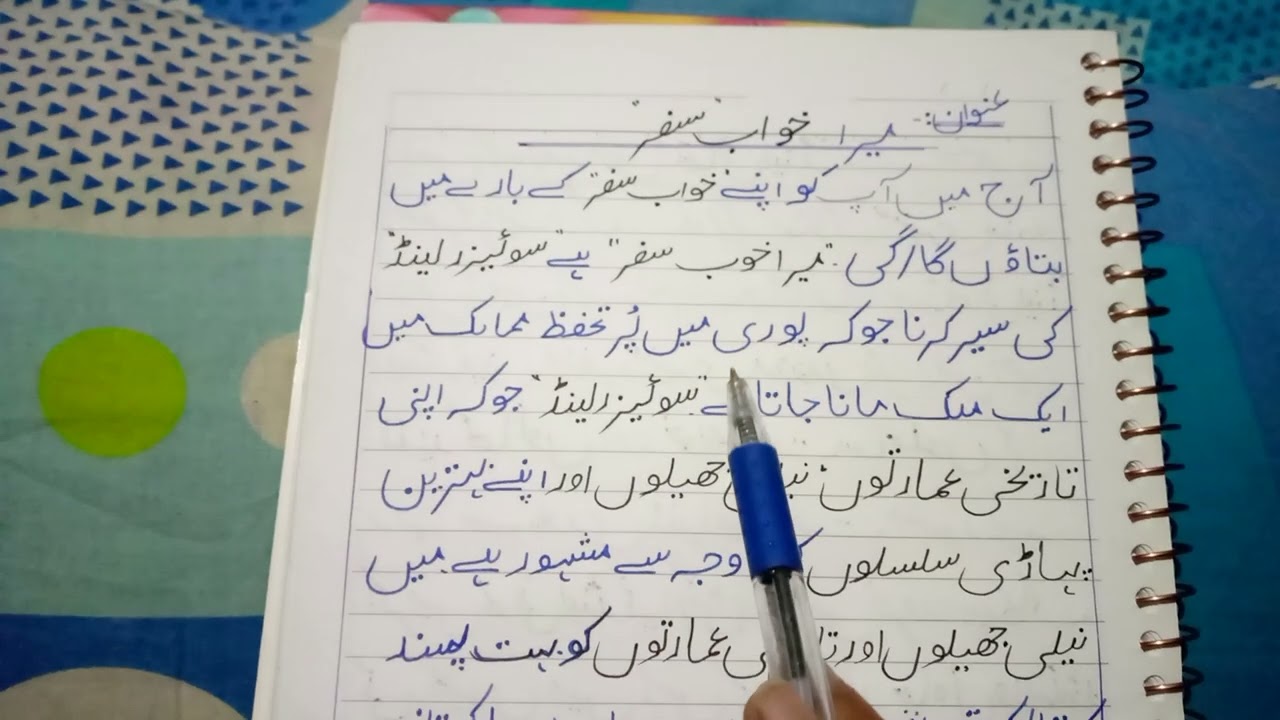 عنوان:- میرا "خواب سفر"
آج میں آپ کو اپنے "خواب سفر" کے بارے میں
بتاؤں گا/گی. "میرا خوب سفر" ہے "سوئیزرلینڈ"
کی سیر کرنا جو کہ پوری میں پُر تحفظ ممالک میں
ایک ملک مانا جاتا "سوئیزرلینڈ" جو کہ اپنی
تاریخی عمارتوں، جھیلوں اور اپنے بہترین
پہاڑی سلسلوں وجہ سے مشہور ہے میں
نیلی جھیلوں اور عمارتوں کو بہت پسند